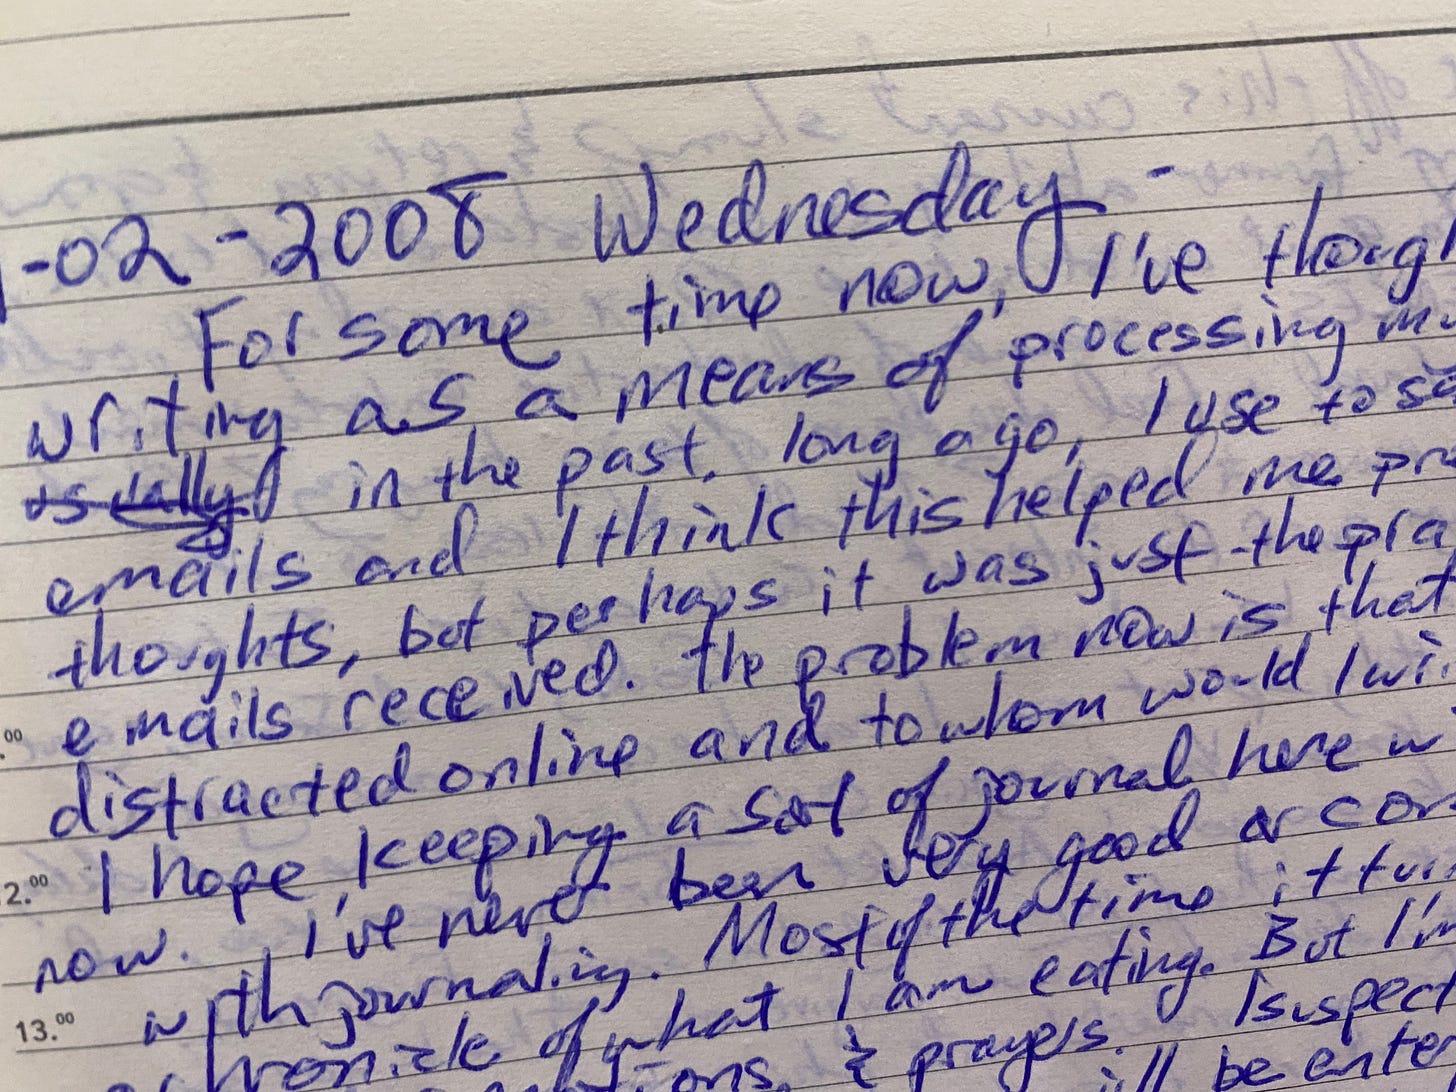 -02-2008 Wednesday -
For some time now, I've though
writing as a means of processing m
in the past. long ago, I use to se
emails and I think this helped me pr
thoughts, but perhaps it was just the pra
.00 emails received. The problem now is that
distracted online and to whom would I wri
2.00 I hope keeping a sort of journal here w
now. I've never been very good or con
13.00 with journaling. Most of the time it tur
chronicle of what I am eating. But I'm
& prayers. I suspect
'll be enter